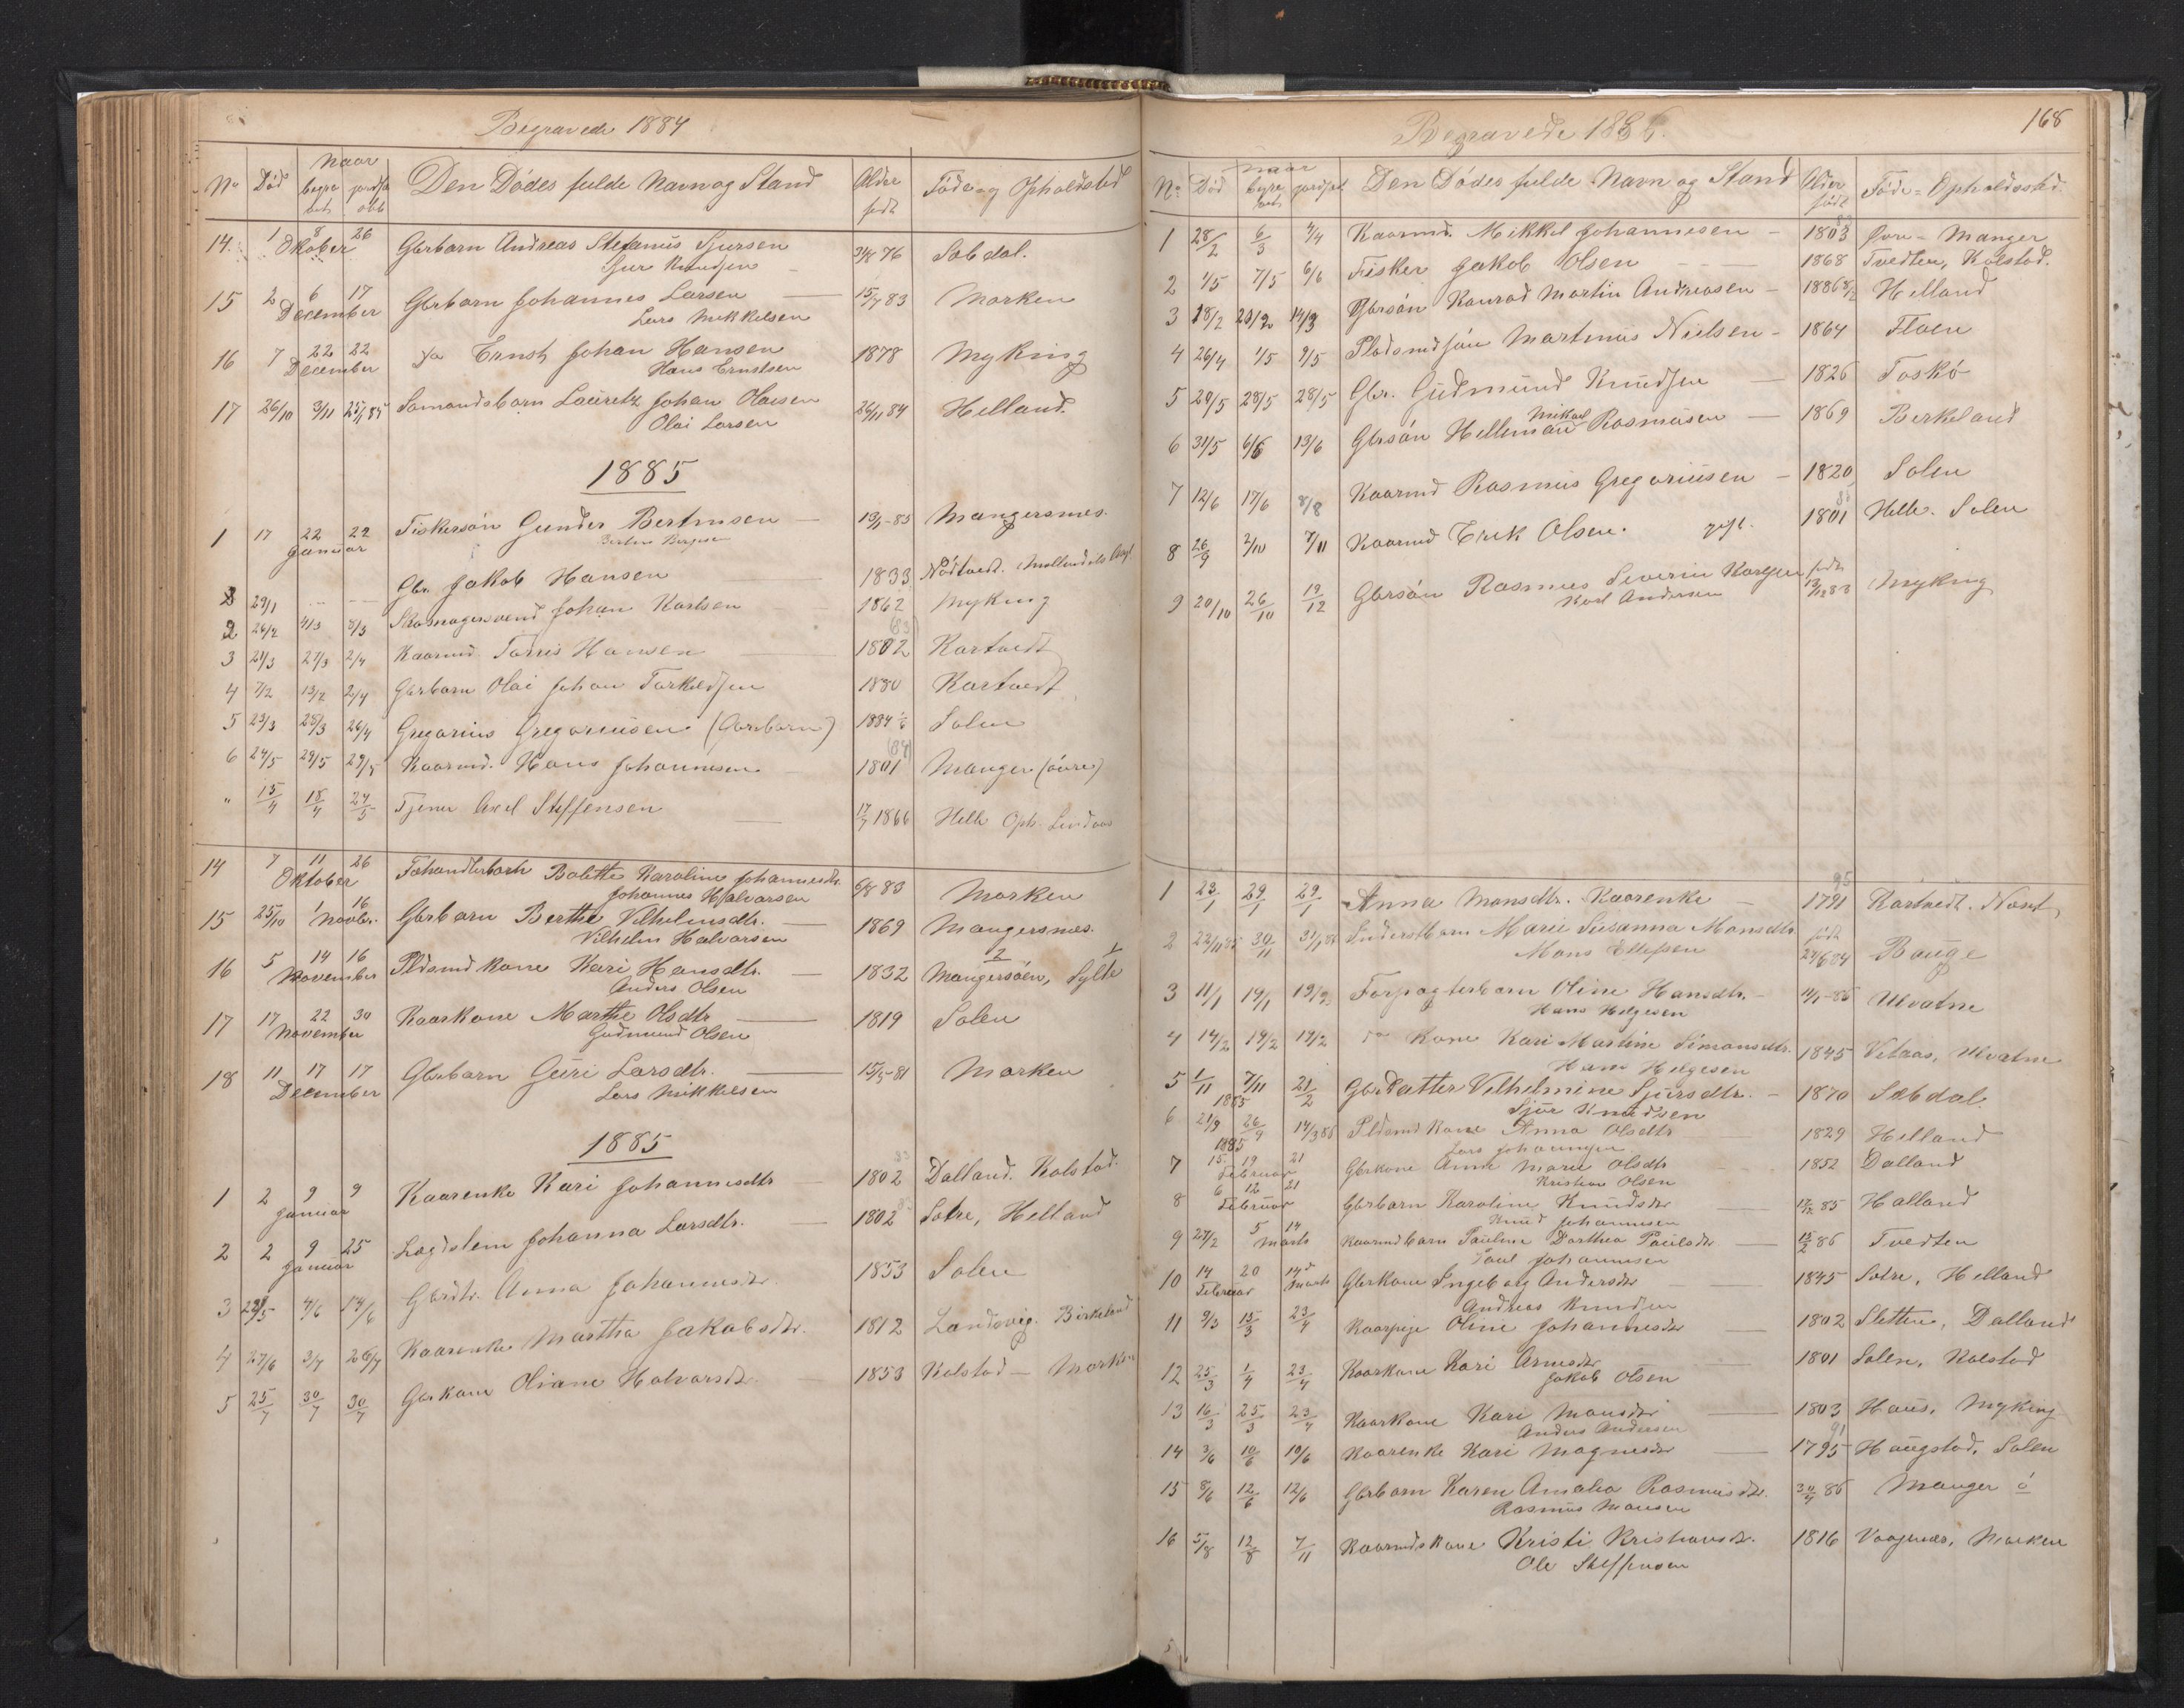 Begravede 1884
No Død Naar begra vet jordfæ stet Den Dødes fulde Navn og Stand Alder født Føde og Opholdssted
14. 1 8 26 Oktober Gbrbarn Andreas Stefanus Sjursen 76 Sæbdal.
Sjur Knudsen
15 2 6 17 December Gbrbarn Johannes Larsen 15/7 83 Marken
Lars Mikkelsen
16 7 22 22 December Ernst Johan Hansen 1878 Myking
Hans Ernstsen
17 26/10 3/11 25/1 85 Sømandsbarn Lauretz Johan Olaisen 26/11 84 Helland.
Olai Larsen
1885
1 17 22 22 Januar Fiskersøn Gunder Bertinsen 13/1-85 Mangersnes.
2 29/1 Gbr. Jakob Hansen 1833 Nødtvedt.
2 26/2 4/3 8/3 Skomagersvend Johan Karlsen 1862 Myking
(83)
3 21/3 27/3 2/4 Kaarmd. Torris Hansen 1802 Kartvedt
4 7/2 13/2 2/4 Gbrbarn Olai Johan Torkildsen 1880 Kartvedt
5 23/3 28/3 26/4 Gregorius Gregoriusen (Gbrbarn) 1884 Solen
(84)
6 24/5 29/5 29/5 Kaarmd. Hans Johannesen 1801 Manger (øvre)
" 15/4 18/4 24/5 Tjener Axel Steffensen 17/7 1866 Helle Oph. Lindaas
14 7 11 26 Oktober Føhandlerbarn Bolette Karoline Johannesdtr. 6/8 83 Marken
Johannes Halvorsen
15 25/10 1 16 Novbr. Gbrbarn Berthe Vilhelmsdtr. 1869 Mangersnes.
Vilhelm Halvorsen
16 5 14 16 November Pldsmd kone Kari Hansdtr. 1832 Mangersøen, Sylte
Anders Olsen
17 17 22 30 November Kaarkone Marthe Olsdtr 1819 Solen
Gudmund Olsen
18 11 17 17 December Gbrbarn Guri Larsdtr. 15/5-81 Marken
Lars Mikkelsen
1885
1 2 9 9 Januar Kaarenke Kari Johannesdtr 1802 Dalland. Kolstad.
2 2 9 25 Januar Lægdslem Johanna Larsdtr. 1802 Sotre, Helland
3 28/5 4/6 14/6 Gbrdtr. Anna Johannesdtr. 1853 Solen
4 27/6 3/7 26/7 Kaarenke Martha Jakobsdtr. 1812 Landsvig. Birkeland
5 25/7 30/7 30/7 Gbrkone Oliane Halvorsdtr. 1853 Kolstad - Marken
168
Begravede 1886.
No Død Naar begra vet jordfæst Den Dødes fulde Navn og Stand Alder født Føde = Opholdssted.
83
1 28/2 6/3 4/4 Kaarmd. Mikkel Johannesen 1803 Øvre-Manger
2 1/5 7/5 6/6 Fisker Jakob Olsen 1868 Tvedten, Kolstad.
3 18/2 20/2 14/3 Gbrsøn Konrad Martin Andreasen 1886 8/2 Helland
4 26/4 1/5 9/5 Pladsmdsøn Martinus Nielsen 1864 Floen
5 20/5 28/5 28/5 Gbr. Gudmund Knudsen 1826 Toskø
Mikael
6 31/5 6/6 13/6 Gbrsøn Hellemann Rasmusen 1869 Berkeland
7 12/6 17/6 8/8 Kaarmd Rasmus Gregoriusen 1820 Solen
8 26/9 2/10 7/11 Kaarmd Erik Olsen. gift. 1801 Helle. Solen
9 20/10 26/10 19/12 Gbrsøn Rasmus Severin Karlsen født 13/12 83 Myking
Karl Andersen
95
1 23/1 29/1 29/1 Anna Monsdtr. Kaarenke 1791 Kartvedt.
2 22/11 85 30/11 31/1 86 Marie Susanna Monsdtr. født 24/6 84 Bauge
Mons Ellefsen
3 11/1 19/1 19/2 Forpagterbarn Oline Hansdtr. 4/1-86 Ulvatne
Hans Helgesen
4 14/2 19/2 19/2 Do Kone Kari Martine Simonsdtr. 1845 Vetaas, Ulvatne
Hans Helgesen
5 1/11 7/11 21/2 1885 Gbrdatter Vilhelmine Sjursdtr. 1870 Sæbdal.
Sjur Knudsen
6 21/9 26/9 14/3 86 1885 Pldsmd kone Anna Olsdtr 1829 Helland
Lars Johannesen
7 15 19 21 Februar Gbrkone Anna Marie Olsdtr 1852 Dalland
Kristian Olsen
8 6 12 21 Februar Gbrbarn Karoline Knudsdtr 85 Halland
Knud Johannesen
9 27/2 5 14 Marts Kaarmdbarn Pauline Dorthea Paulsdtr 15/2 86 Tvedten
Paul Johannesen
10 14 Februar 20 14 Marts Gbrkone Ingeborg Andersdtr 1845 Sotre, Helland
Andreas Knudsen
11 9/3 15/3 23/4 Kaarpige Oline Johannesdtr 1802 Sletten, Dalland
12 25/3 1/4 23/4 Kaarkone Kari Arnesdtr 1801 Solen, Kolstad
Jakob Olsen
13 16/3 25/3 23/4 Kaarkone Kari Monsdtr 1803 Haus, Myking
Anders Andersen
91
14 3/6 10/6 10/6 Kaarenke Kari Magnesdtr 1795 Haugstad, Solen
15 8/6 12/6 12/6 Gbrbarn Karen Amalia Rasmusdtr. 30/4 86 Manger ø
Rasmus Monsen
16 5/8 12/8 7/11 Kaarmdskone Kristi Kristiansdtr. 1816 Vaagenes, Marken
Ole Steffensen